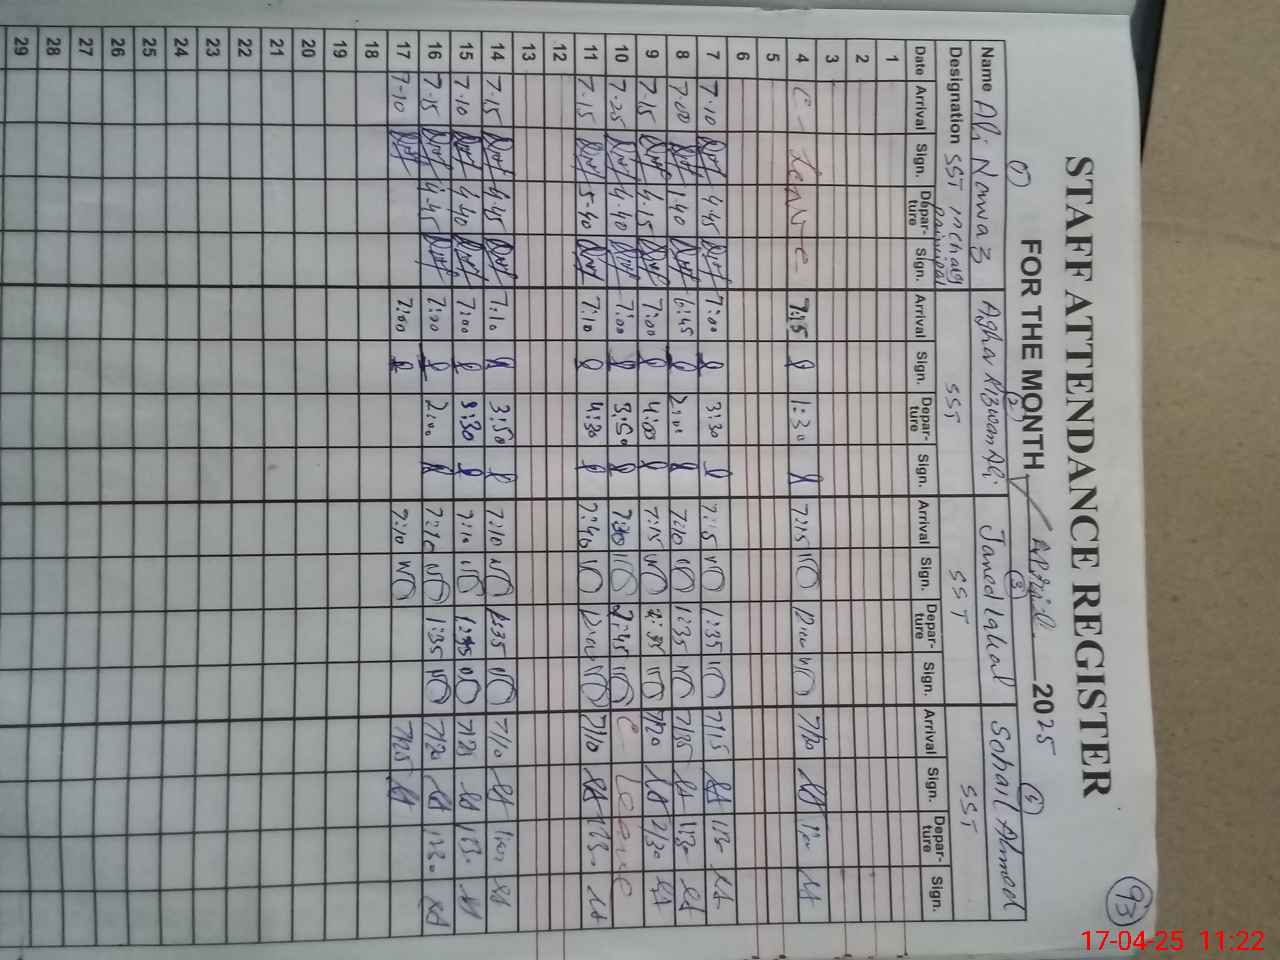 93
STAFF ATTENDANCE REGISTER
FOR THE MONTH April 2025
(1) (2) (3) (5)
Name Ali Nawaz Agha Rizwan Ali Sohail Ahmed
Designation SST Incharg Principal SST SST SST
Date Arrival Sign. Departure Sign. Arrival Sign. Departure Sign. Arrival Sign. Departure Sign. Arrival Sign. Departure Sign.
1
2
3
4 C-Leave 7:15 1:30 7:15 12:00 7/20
5
6
7 7.10 4.45 7:00 3:30 7:15 1:35 7/15 1:30
8 7.00 1.40 6:45 2:00 7:10 1:35 7/35 1:30
9 7.15 4.15 7:00 4:00 7:15 7/20 2/30
10 7.25 4.40 7:00 3:50 C Leave
11 7.15 5.40 7:10 4:30 7:40 12:00 7/10 1:30
12
13
14 7.15 4.45 7:10 3:50 7:10 1:35 7/10
15 7.10 4.40 7:00 3:30 7:10 7/25 1:30
16 7.15 4.45 7:00 2:00 7:10 1:35 7/20 1:30
17 7.10 7:00 7:10 7/25
18
19
20
21
22
23
24
25
26
27
28
29
17-04-25 11:22